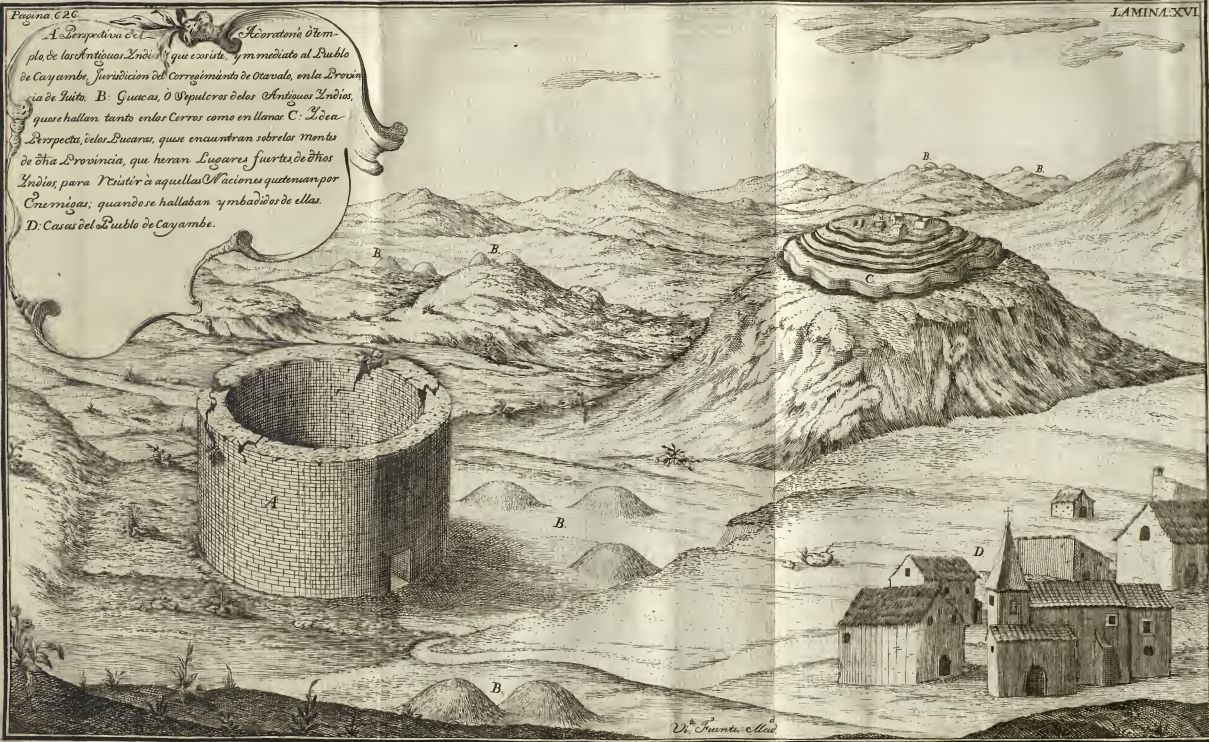 Pagina. 626.
LAMINA: XVI
A Perspectiva del Adoratorio, ò tem-
plo, de los Antiguos Yndios que exsiste, ymmediato al Pueblo
de Cayambe, Jurisdicion del Corregimiento de Otavalo, en la Provin
cia de Quito. B: Guacas, Ò Sepulcros delos Antiguos Yndios,
quese hallan tanto enlos Cerros como en llanos. C: Ydea
Perspecta, delos Pucaras, quese encuentran sobrelos montes
de dha Provincia, que heran Lugares fuertes, de dhos
Yndios, para resistir à aquellas Naciones quetenian por
Enemigas; quandose hallaban ymbadidos de ellas.
D: Casas del Pueblo de Cayambe.
B.
B.
B.
B.
C
A
B.
D
B.
Fuente